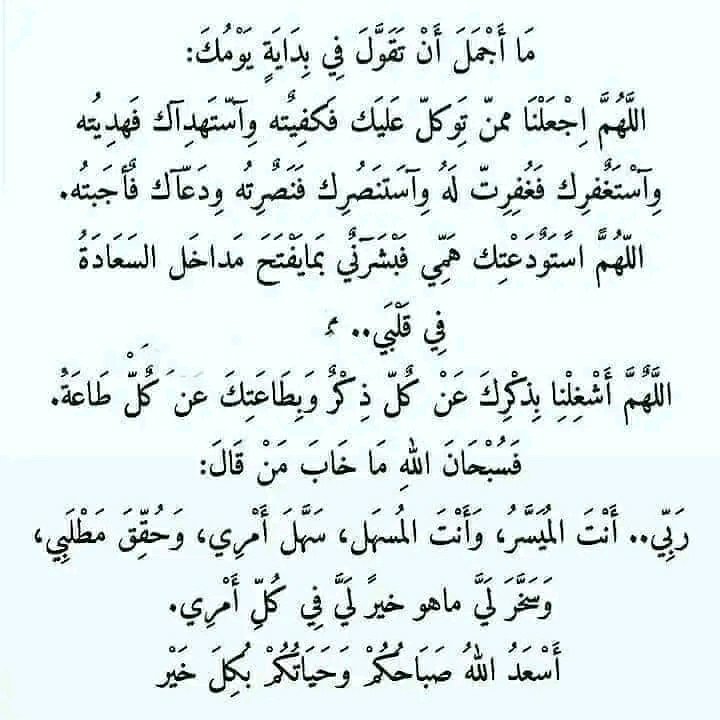 مَا أَجْمَلَ أَنْ تَقَوَّلَ فِي بِدَايَةٍ يَوْمُكَ:
اللَّهُمَّ اِجْعَلْنَا ممنّ تَوكلّ عَليَك فَكفِيٌته وِآسّتَهدِآك فَهدِيُته
وِآسْتَغٌفرِك فَغُفِرِتّ لَهُ وِآسَتنَصُرِك فَنَصٌرِتُه وِدَعّآك فٌأجَبتُه.
اللّهُمَّ اسًتَوٌدَعْتِك هَمِّي فَبْشَرَٓنٌي بَمايَفْتَحَ مَداخَل السَعَادَةُ
فِي قَلْبَي..
اللَّهٌمَّ أَشْغِلْنِا بِذكْرِكَ عَنْ كُلّ ذِكْرٌ وَبِطَاعَتِكَ عَنَ كٌلّ طَاعَةُ.
فَسُبْحَانَ اللهِ مَا خَابَ مَنْ قَالَ:
رَبِّي.. أَنْتَ المُيَسَّرُ، وَأَنْتَ المُسهَل، سَهَّلَ أَمْرِي، وَحُقِّقَ مَطْلَبِي،
وَسَخَّرَ لَيَّ ماهو خيرً لَيَّ فِي كُلِّ أَمْرِي.
أَسْعَدُ اللهُ صَبَاحُكُمْ وَحَيَاتُكُمْ بُكِلَ خَيْر